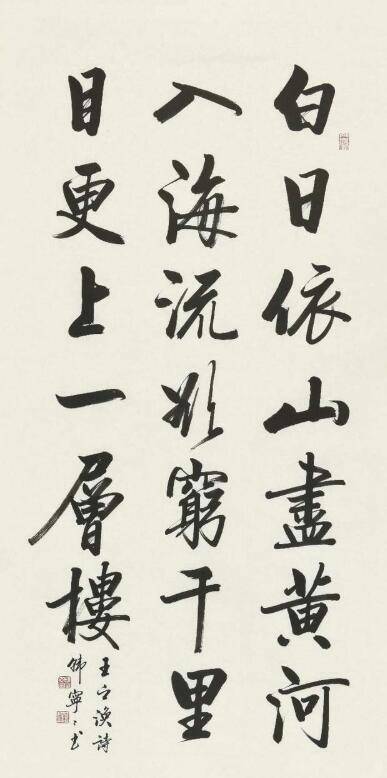 白日依山盡黃河
入海流欲窮千里
目更上一層樓
王之渙詩
韩寧寧书